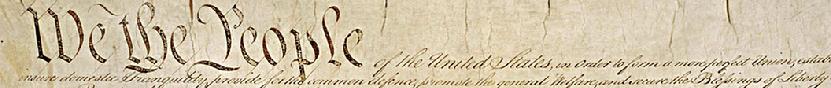 We the People of the United States, in Order to form a more perfect Union, establ
insure domestic Tranquility, provide for the common defence, promote the general Welfare, and secure the Blessings of Liberty